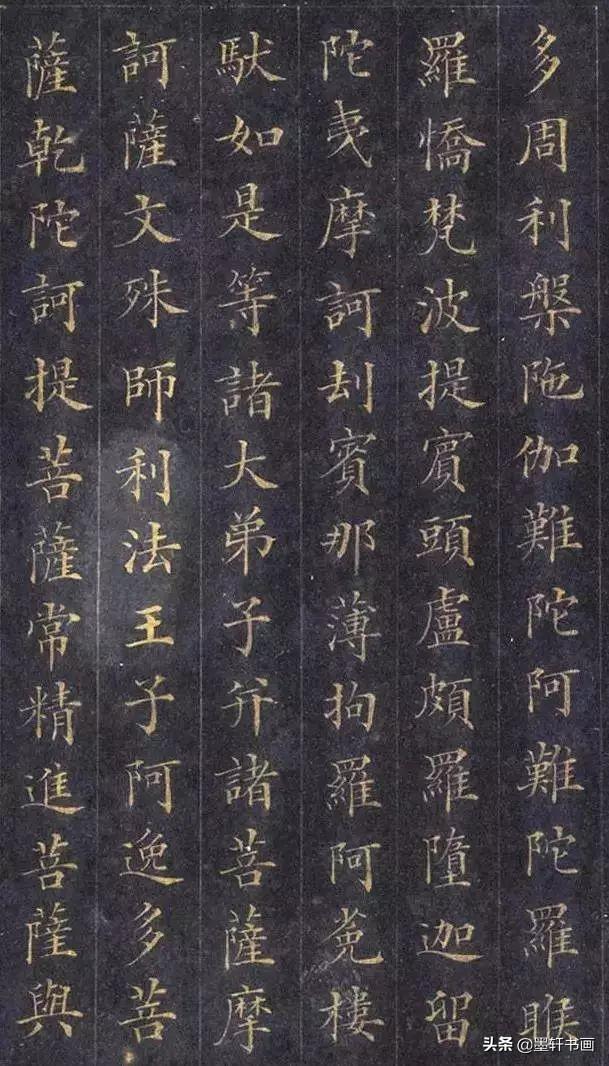 多周利槃陁伽難陀阿難陀羅睺
羅憍梵波提賓頭盧頗羅墮迦留
陀夷摩訶刦賓那薄拘羅阿㝹樓
馱如是等諸大弟子并諸菩薩摩
訶薩文殊師利法王子阿逸多菩
薩乾陀訶提菩薩常精進菩薩與
头条 @墨轩书画